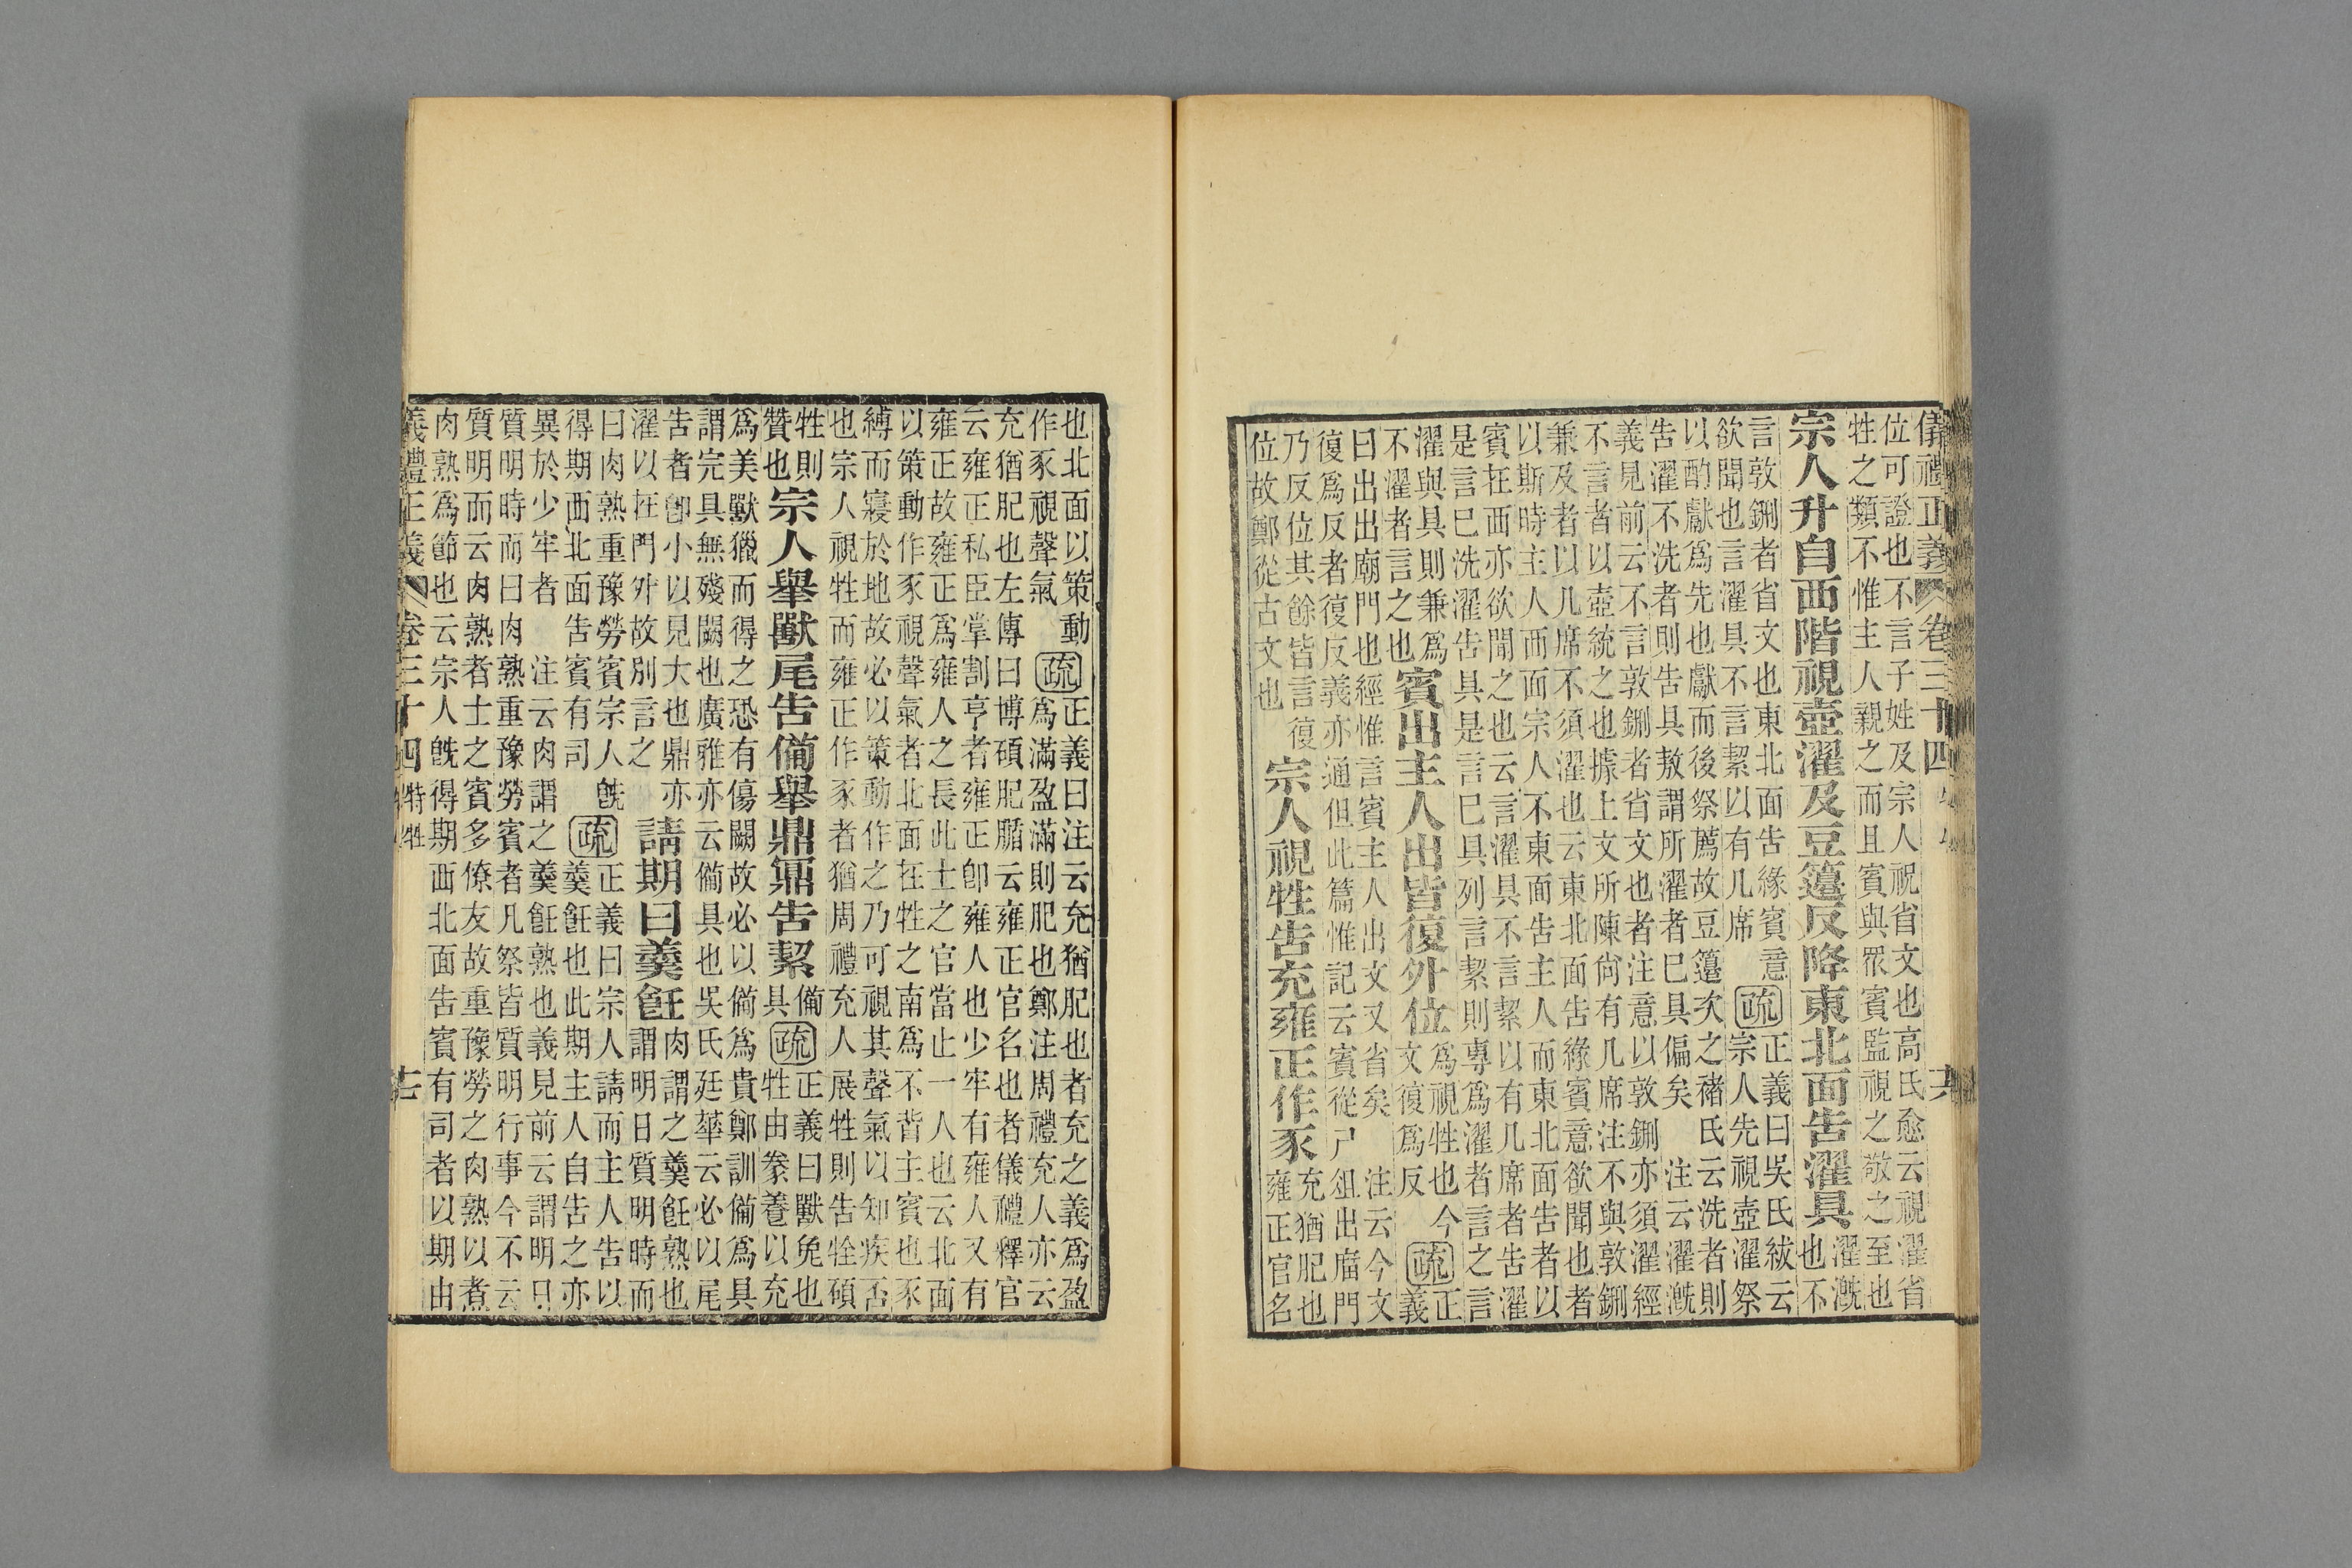 儀禮正義 卷三十四
位可證也不言子姓及宗人祝省文也高氏愈云視濯省
牲之類不惟主人親之而且賓與眾賓監視之敬之至也
宗人升自西階視壺濯及豆籩反降東北面告濯具
濯漑
也不
言敦鉶者省文也東北面告緣賓意
欲聞也言濯具不言絜以有几席
疏
正義曰吳氏紱云
宗人先視壺濯祭
以酌獻爲先也獻而後祭薦故豆籩次之褚氏云洗者則
告濯不洗者則告具敖謂所濯者已具偏矣 注云濯漑
義見前云不言敦鉶者省文也者注意以敦鉶亦須濯經
不言者以壺統之也據上文所陳尙有几席注不與敦鉶
兼及者以几席不須濯也云東北面告緣賓意欲聞也者
以斯時主人西面宗人不東面告主人而東北面告者以
賓在西亦欲聞之也云言濯具不言絜以有几席者告濯
是言已洗濯告具是言已具列言絜則專爲濯者言之言
濯與具則兼爲
不濯者言之也
賓出主人出皆復外位
爲視牲也今
文復爲反
疏
正
義
曰出出廟門也經惟言賓主人出文又省矣 注云今文
復爲反者復反義亦通但此篇惟記云賓從尸俎出廟門
乃反位其餘皆言復
位故鄭從古文也
宗人視牲告充雍正作豕
充猶肥也
雍正官名
也北面以策動
作豕視聲氣
疏
正義曰注云充猶肥也者充之義爲盈
爲滿盈滿則肥也鄭注周禮充人亦云
充猶肥也左傳曰博碩肥腯云雍正官名也者儀禮釋官
云雍正私臣掌割亨者雍正卽雍人也少牢有雍人又有
雍正故雍正爲雍人之長此士之官當止一人也云北面
以策動作豕視聲氣者北面在牲之南爲不背主賓也豕
縛而寢於地故必以策動作之乃可視其聲氣以知疾否
也宗人視牲而雍正作豕者猶周禮充人展牲則告牷碩
牲則
贊也
宗人舉獸尾告備舉鼎鼏告絜
備
具
疏
正義曰獸兔也
牲由豢養以充
爲美獸獵而得之恐有傷闕故必以備爲貴鄭訓備爲具
謂完具無殘闕也廣雅亦云備具也吳氏廷華云必以尾
告者卽小以見大也鼎亦
濯以在門外故別言之
請期曰羹飪
肉謂之羹飪熟也
謂明日質明時而
曰肉熟重豫勞賓宗人旣
得期西北面告賓有司
疏
正義曰宗人請而主人告以
羹飪也此期主人自告之亦
異於少牢者 注云肉謂之羹飪熟也義見前云謂明日
質明時而曰肉熟重豫勞賓者凡祭皆質明行事今不云
質明而云肉熟者士之賓多僚友故重豫勞之肉熟以煮
肉熟爲節也云宗人旣得期西北面告賓有司者以期由
儀禮正義 卷三十四 特牲